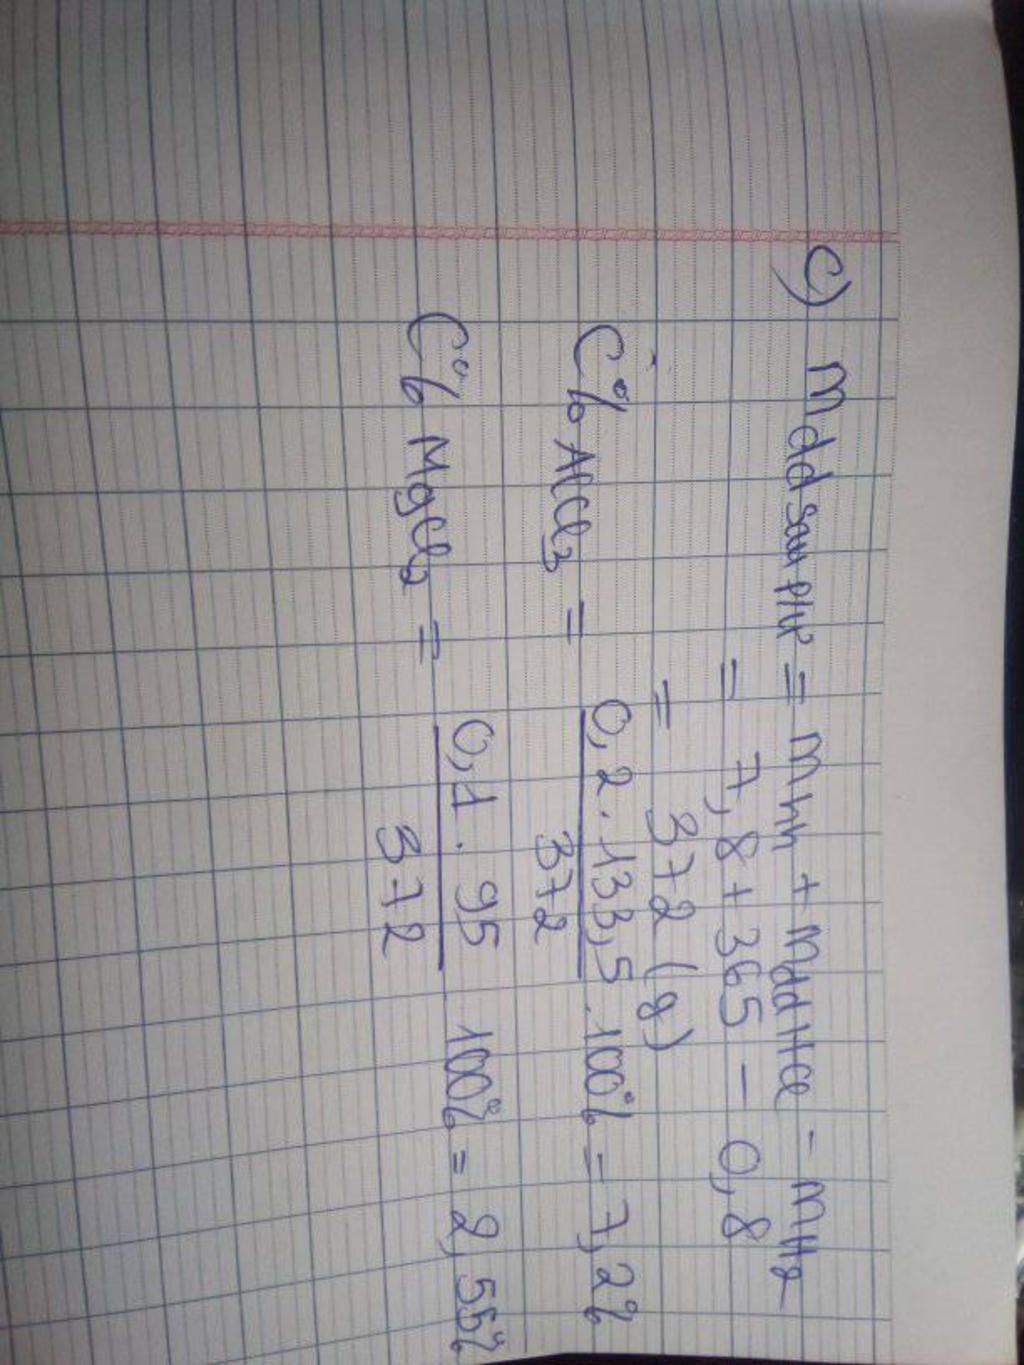 c) mdd sau pư = mhh + mdd HCl - mH2
= 7,8 + 365 - 0,8
= 372 (g)
C% AlCl3 = 0,2 . 133,5 / 372 . 100% = 7,2%
C% MgCl2 = 0,1 . 95 / 372 100% = 2,55%